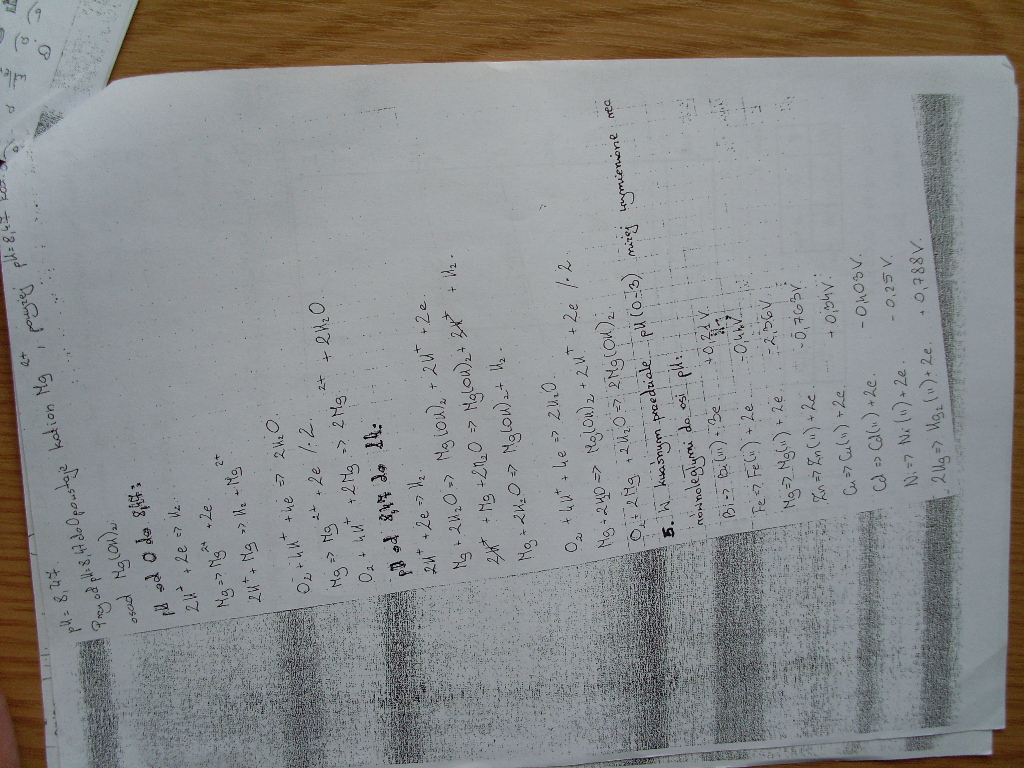 pH = 8,47.
Mg²⁺, powyżej pH = 8,47
Przy od pH = 8,47 do powstaje kation
osad Mg(OH)₂.
pH od 0 do 8,47:
2H⁺ + 2e => H₂.
Mg => Mg²⁺ + 2e.
2H⁺ + Mg => H₂ + Mg²⁺
O₂ + 4H⁺ + 4e => 2H₂O.
Mg => Mg²⁺ + 2e /·2.
O₂ + 4H⁺ + 2Mg => 2Mg²⁺ + 2H₂O
pH od 8,47 do
2H⁺ + 2e => H₂.
Mg + 2H₂O => Mg(OH)₂ + 2H⁺ + 2e.
2H⁺ + Mg + 2H₂O => Mg(OH)₂ + 2H⁺ + H₂.
Mg + 2H₂O => Mg(OH)₂ + H₂.
O₂ + 4H⁺ + 4e => 2H₂O.
Mg + 2H₂O => Mg(OH)₂ + 2H⁺ + 2e /·2
O₂ + 2Mg + 2H₂O => 2Mg(OH)₂
5. W kwaśnym przedziale pH (0÷3) niżej wymienione
równoległymi do osi pH:
Bi => Bi(III) + 3e
Fe => Fe(II) + 2e -0,44V
Mg => Mg(II) + 2e -2,36V
Zn => Zn(II) + 2e -0,763V
Cu => Cu(II) + 2e +0,34V
Cd => Cd(II) + 2e -0,403V.
Ni => Ni(II) + 2e -0,25V
2Hg => Hg₂(II) + 2e. +0,788V.